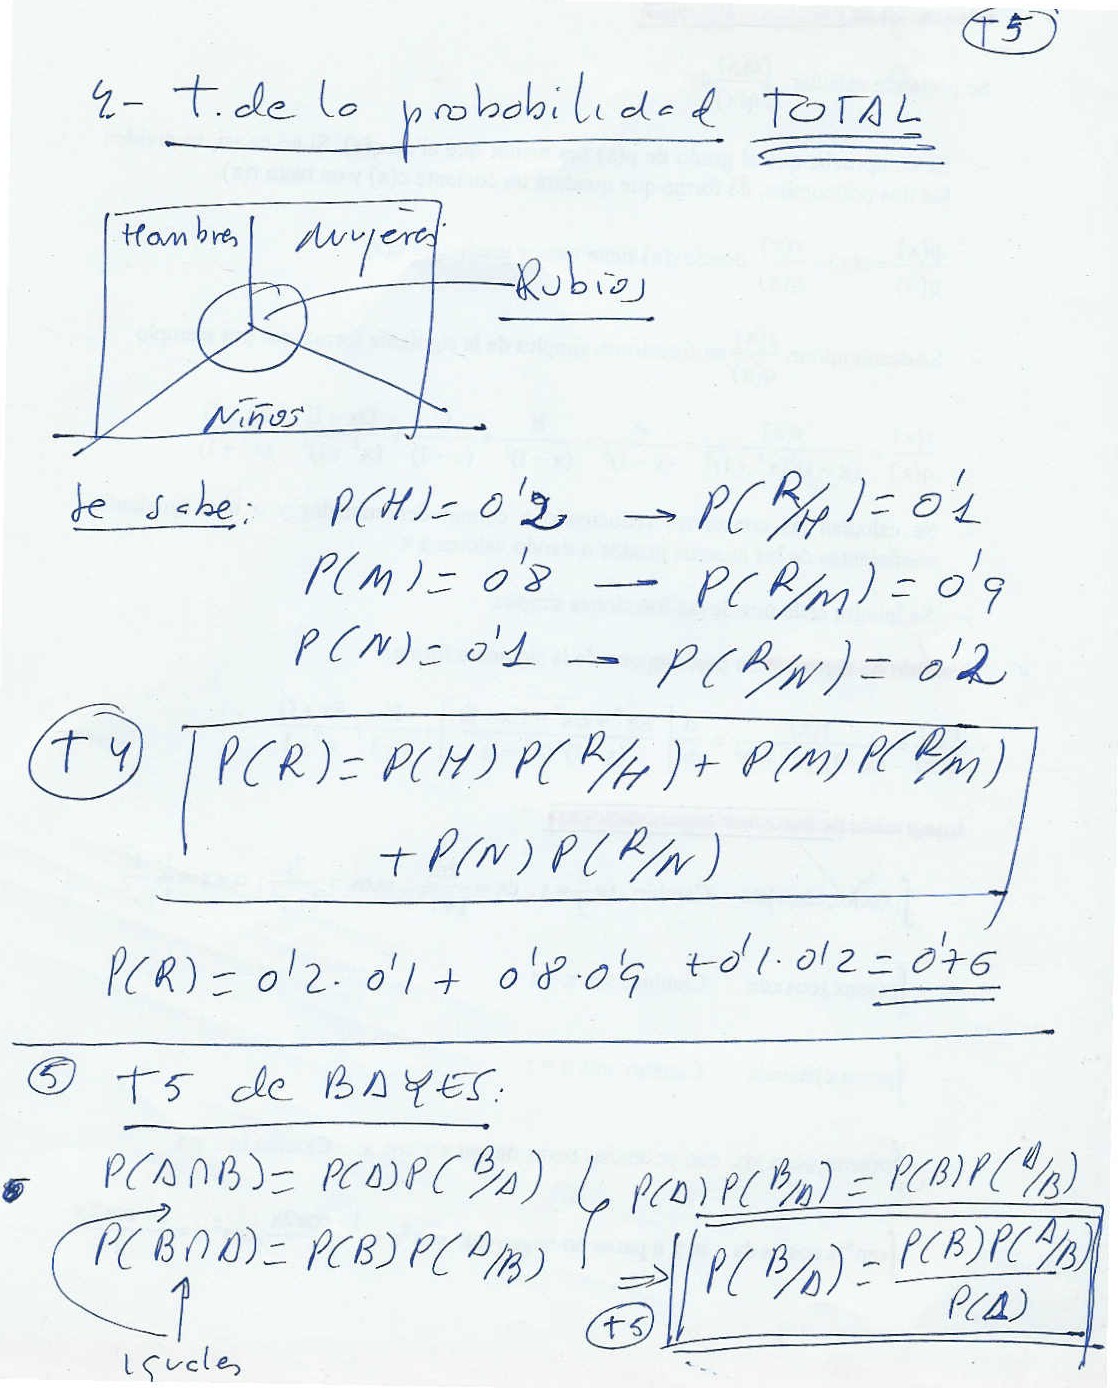 T5
4- T. de la probabilidad TOTAL
Hombres Mujeres
Rubios
Niños
Se sabe: P(H)= 0'2 → P(R/H)= 0'1
P(M)= 0'8 — P(R/M)= 0'9
P(N)= 0'1 → P(R/N)= 0'2
T4 P(R)= P(H) P(R/H)+ P(M) P(R/M)
+ P(N) P(R/N)
P(R)= 0'2. 0'1+ 0'8.0'9 +0'1.0'2 = 0'76
5 T5 de BAYES:
P(A∩B)= P(A)P(B/A) P(A)P(B/A)= P(B)P(A/B)
P(B∩A)= P(B)P(A/B) ⇒ P(B/A)= P(B)P(A/B)
P(A)
T5
iguales